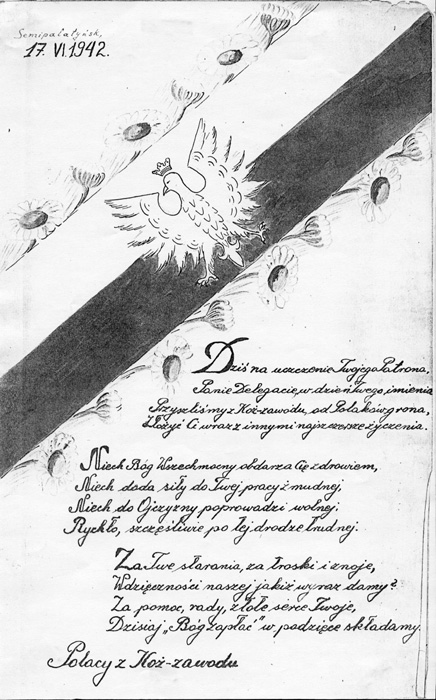 Semipałatyńsk,
17. VI. 1942.
Dziś na uczczenie Twojego Patrona,
Panie Delegacie, w dzień Twego imienia
Przyszliśmy z Koż-zawodu, od Polaków grona,
Złożyć Ci wraz z innymi najszczersze życzenia.
Niech Bóg Wszechmocny obdarza Cię zdrowiem,
Niech doda siły do Twej pracy żmudnej,
Niech do Ojczyzny poprowadzi wolnej;
Rychło, szczęśliwie po tej drodze trudnej.
Za Twe starania, za troski i znoje,
Wdzięczności naszej jakiż wyraz damy?
Za pomoc, rady, złote serce Twoje,
Dzisiaj „Bóg zapłać" w podzięce składamy.
Polacy z Koż-zawodu